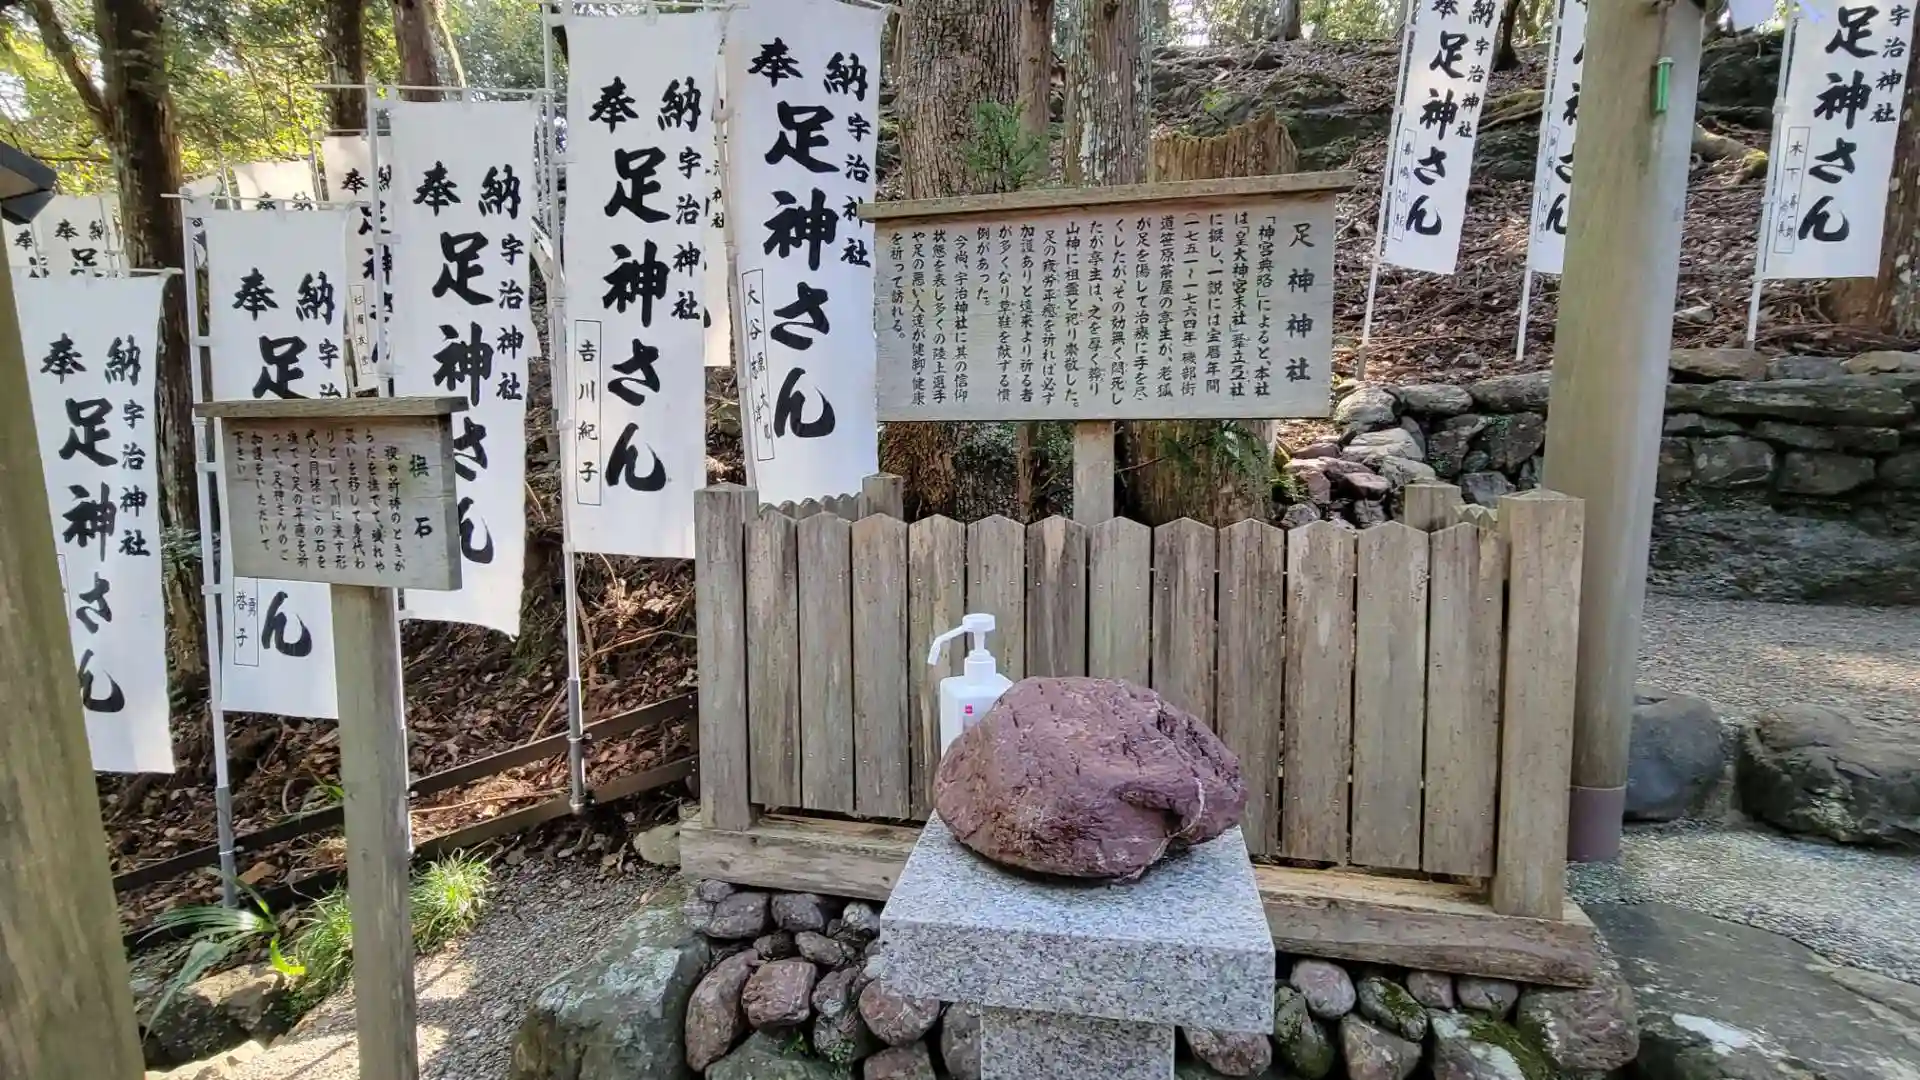 足神神社
「神宮典略」によると、本社
は「皇大神宮末社」葦立弖社
に擬し、一説には宝暦年間
(一七五一~一七六四年)磯部街
道笹原茶屋の亭主が、老狐
が足を傷して治療に手を尽
くしたが、その効無く悶死し
たが亭主は、之を厚く葬り
山神に祖霊と祀り崇敬した。
足の疲労平癒を祈れば必ず
加護ありと遠来より祈る者
が多くなり草鞋を献ずる慣
例があった。
今尚、宇治神社に其の信仰
状態を表し多くの陸上選手
や足の悪い人達が健脚、健康
を祈って訪れる。
撫石
禊や祈祷のときが
らだを撫でて、穢れや
災いを移して身代わ
りとして川に流す形
代と同様にこの石を
撫でて足の平癒を祈
って、足神さんのご
加護をいただいて
下さい
奉納
宇治神社
足神さん
奉納
宇治
足
さん
啓子
奉納
宇治神社
足神さん
奉納
宇治神社
足神さん
吉川紀子
奉納
宇治神社
足神さん
大谷
奉納
宇治神社
足神さん
足神さん
宇治神社
足神さん
木下